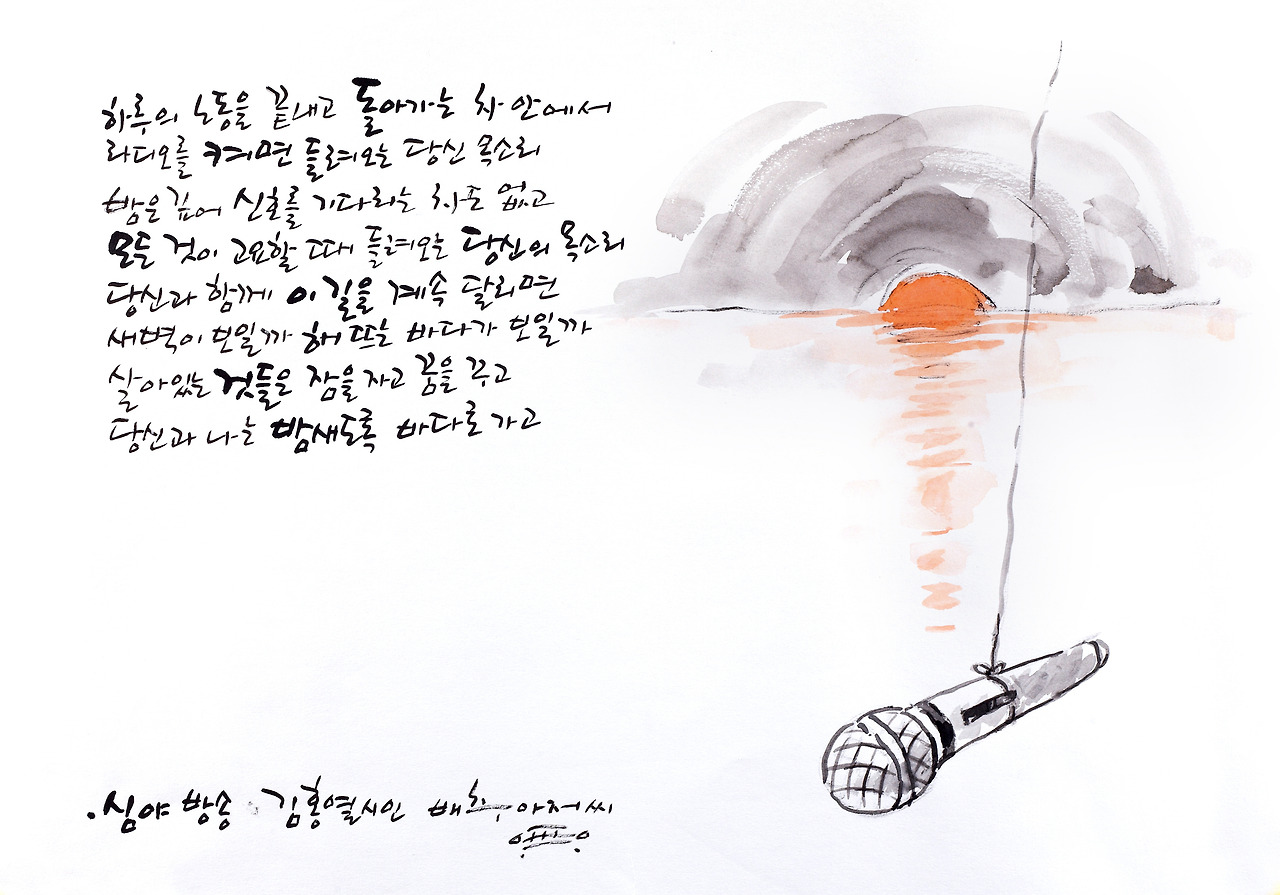 하루의 노동을 끝내고 돌아가는 차 안에서
라디오를 켜면 들려오는 당신 목소리
밤은 깊어 신호를 기다리는 차도 없고
모든 것이 고요할 때 들려오는 당신의 목소리
당신과 함께 이 길을 계속 달리면
새벽이 보일까 해 뜨는 바다가 보일까
살아있는 것들은 잠을 자고 꿈을 꾸고
당신과 나는 밤새도록 바다로 가고
·심야 방송 · 김홍열시인 배추 아저씨